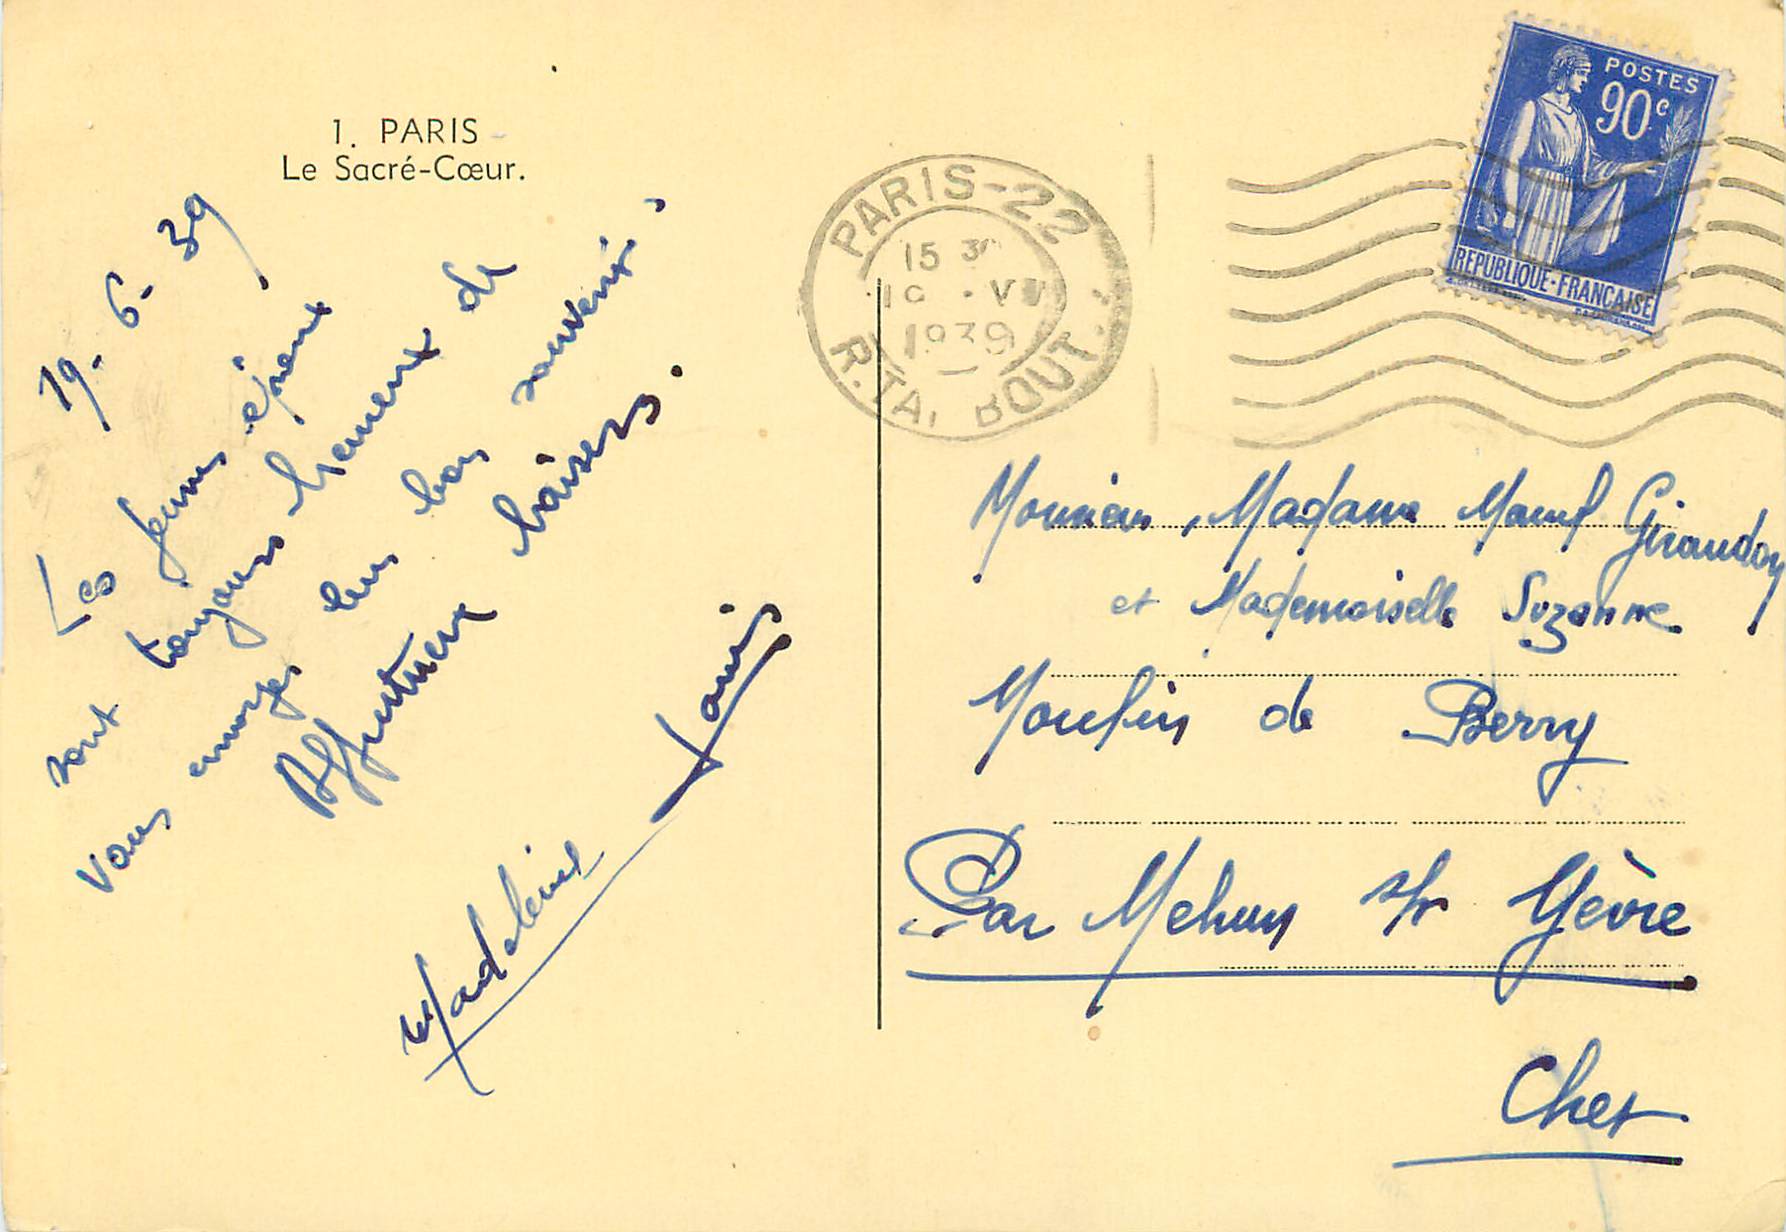 1. PARIS
Le Sacré-Cœur.
19-6-39
Les jeunes époux
sont toujours heureux de
vous envoyer leurs bons souvenirs.
Affectueux baisers.
Louis
Madeleine
PARIS-22
15 3
19 VI
1939
R. TAI BOUT.
POSTES
90c
REPUBLIQUE-FRANCAISE
Monsieur, Madame Giraudon
et Mademoiselle Suzanne
Moulin de Berry
Par Mehun s/r Yèvre
Cher